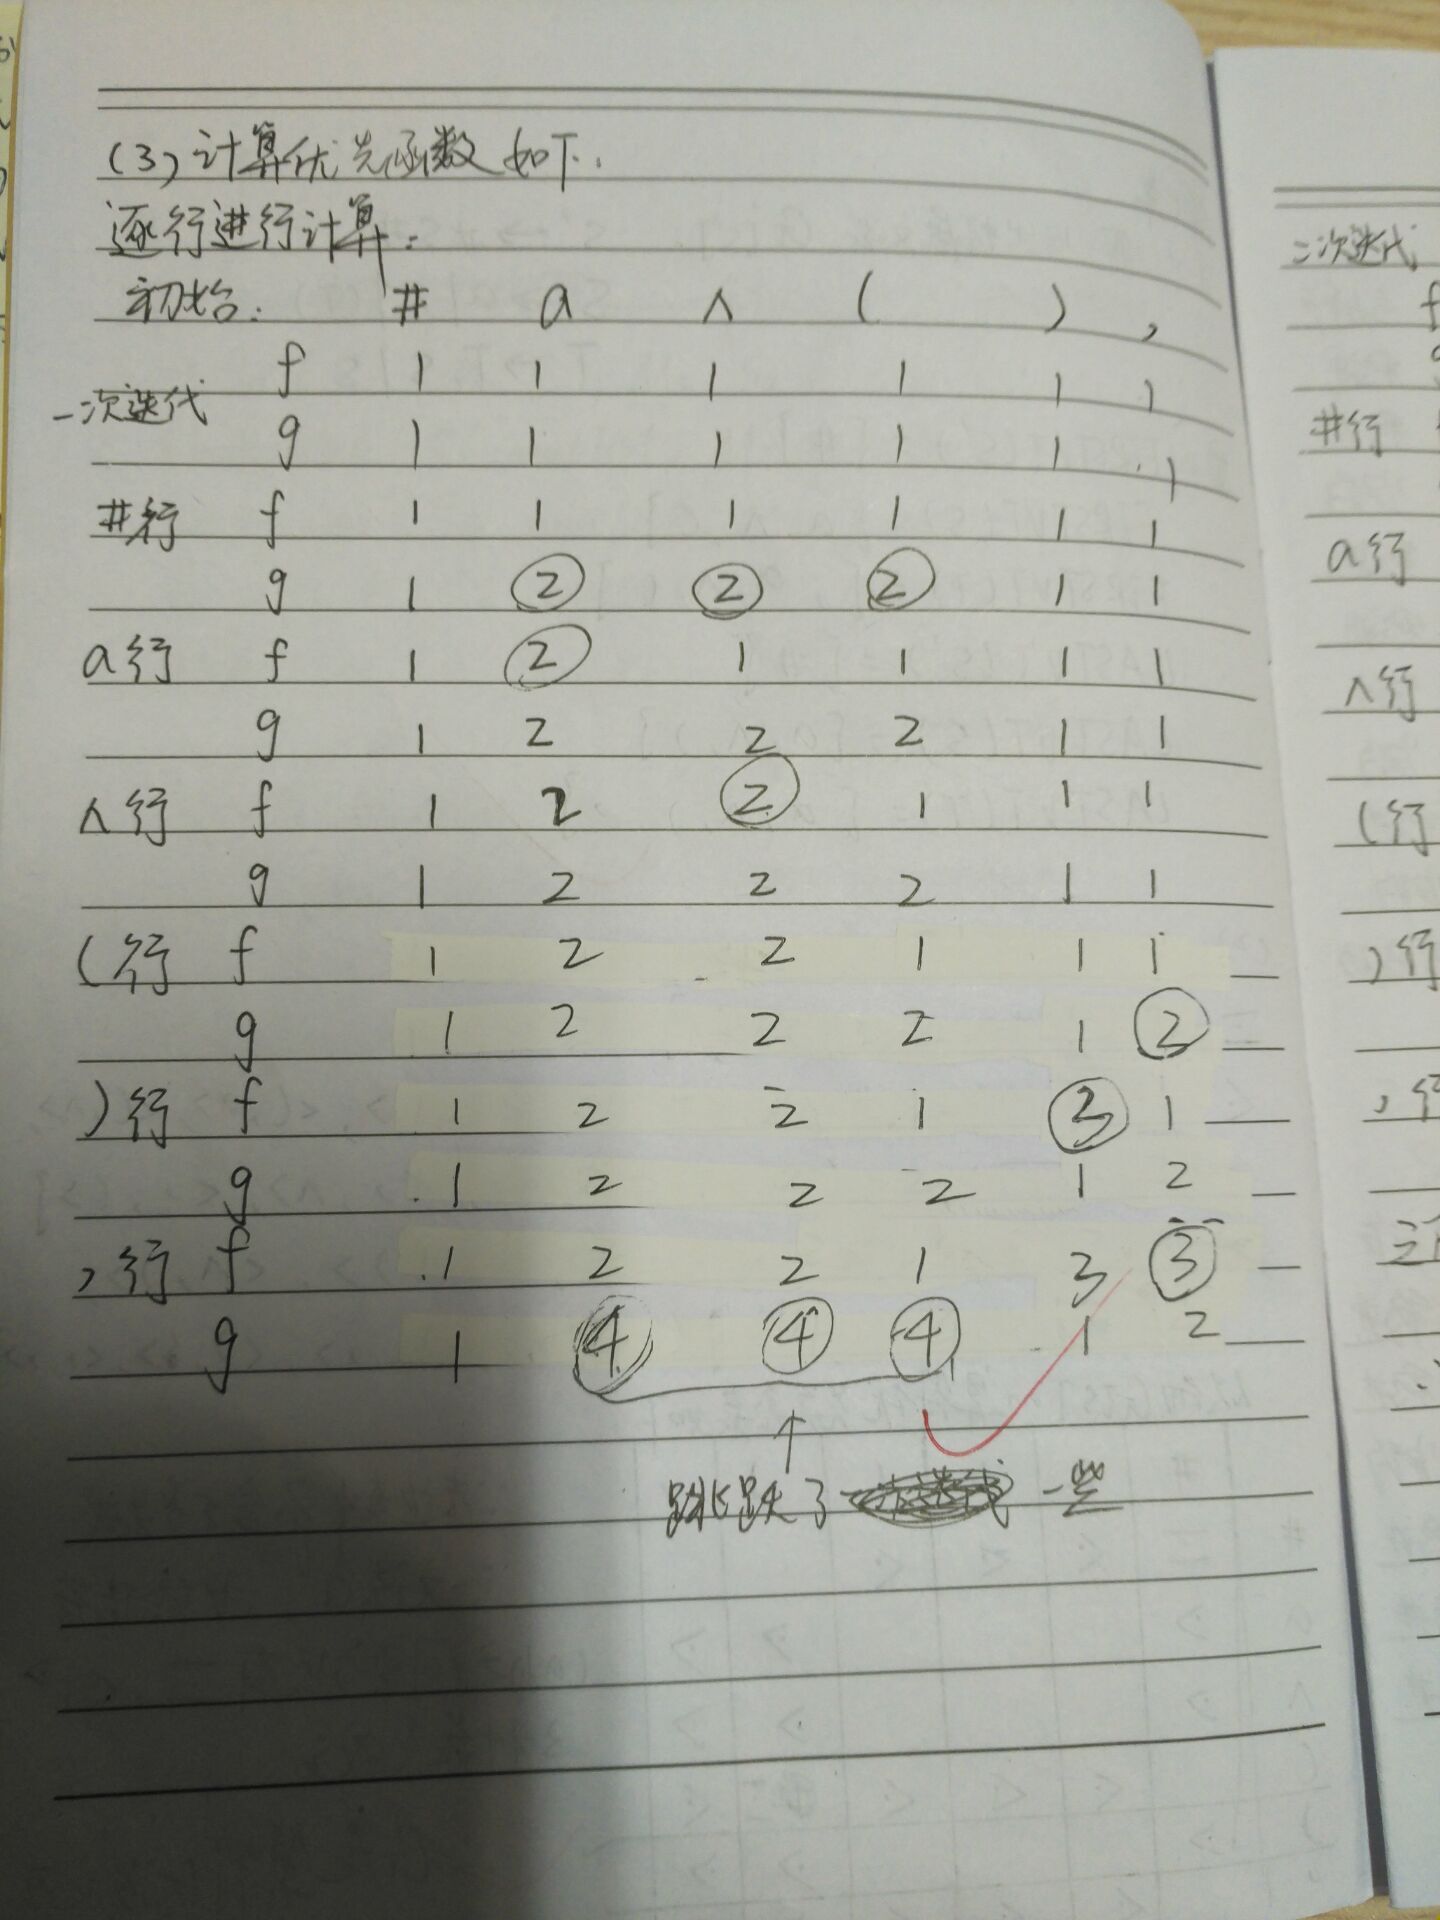 (3)计算优先函数如下.
逐行进行计算:
初始: # a ∧ ( ) ,
f 1 1 1 1 1 1
一次迭代
g 1 1 1 1 1 1
#行 f 1 1 1 1 1 1
g 1 2 2 2 1 1
a行 f 1 2 1 1 1 1
g 1 2 2 2 1 1
∧行 f 1 2 2 1 1 1
g 1 2 2 2 1 1
(行 f 1 2 2 1 1 1
g 1 2 2 2 1 2
)行 f 1 2 2 1 3 1
g 1 2 2 2 1 2
,行 f 1 2 2 1 3 3
g 1 4 4 4 1 2
跳跃了 一些
二次迭代
f
g
#行
a行
∧行
(行
)行
,行